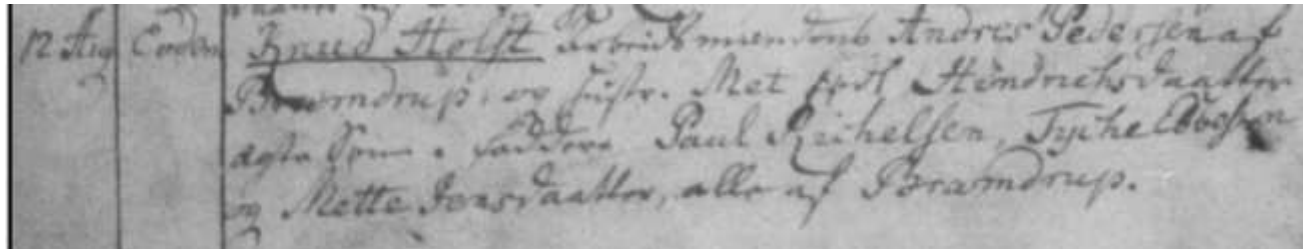 12 Aug Eodem Knud Holst Arbeidsmandens Andres Pedersen af
Bramdrup, og Hustr. Met Hindrichsdaatter
ægte Søn. Faddere Paul Michelsen, Tyche
og Mette Jensdaatter, alle af Bramdrup.